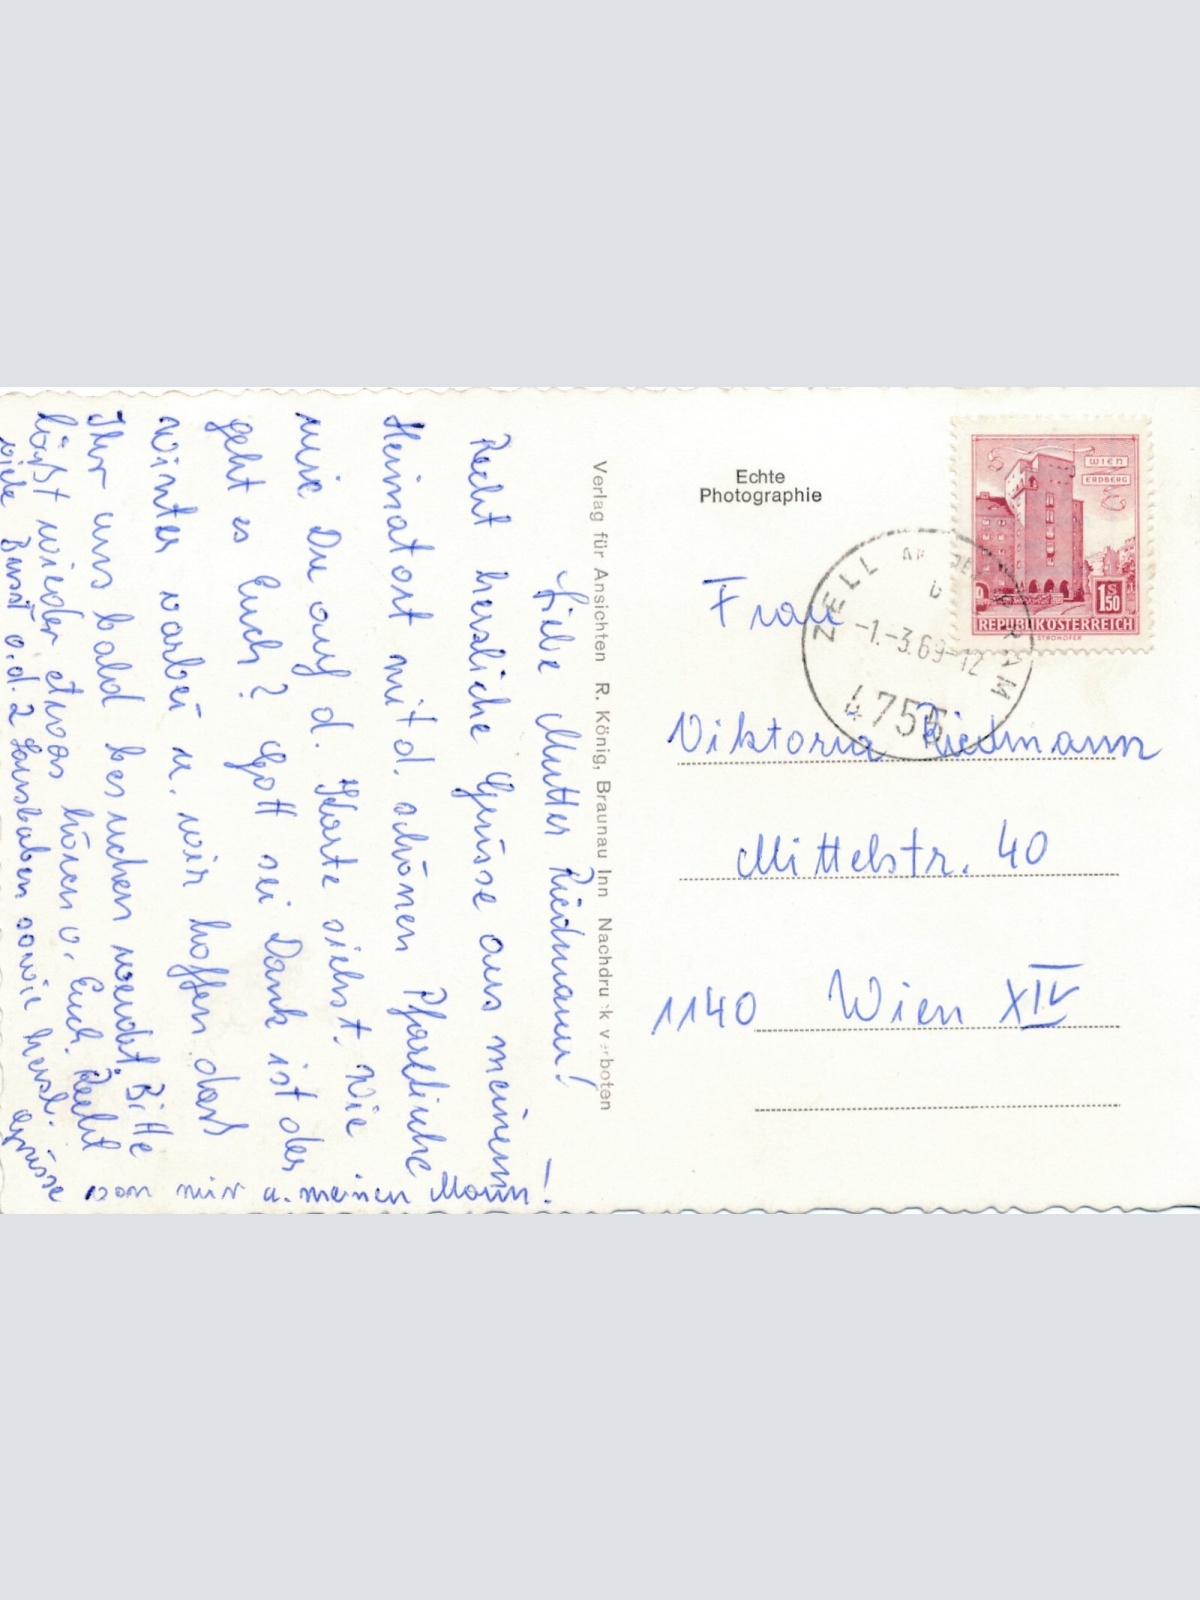 Liebe Mutter Riedmann!
Recht herzliche Grüsse aus meinem
Heimatort mit d. schönen Pfarrkirche
wie Du auf d. Karte siehst. Wie
geht es Euch? Gott sei Dank ist der
Winter vorbei u. wir hoffen dass
Ihr uns bald besuchen werdet. Bitte
lässt wieder etwas hören v. Euch. Recht
viele Bussi v. d. 2 sowie herzl. Grüsse
von mir u. meinen Mann!
Verlag für Ansichten R. König, Braunau Inn Nachdruck verboten
Echte
Photographie
WIEN
ERDBERG
1 S 50
REPUBLIK ÖSTERREICH
STROHOFER
ZELL AN DER PRAM
b
-1.-3.69-12
4755
Frau
Viktoria Riedmann
Mittelstr. 40
1140 Wien XIV